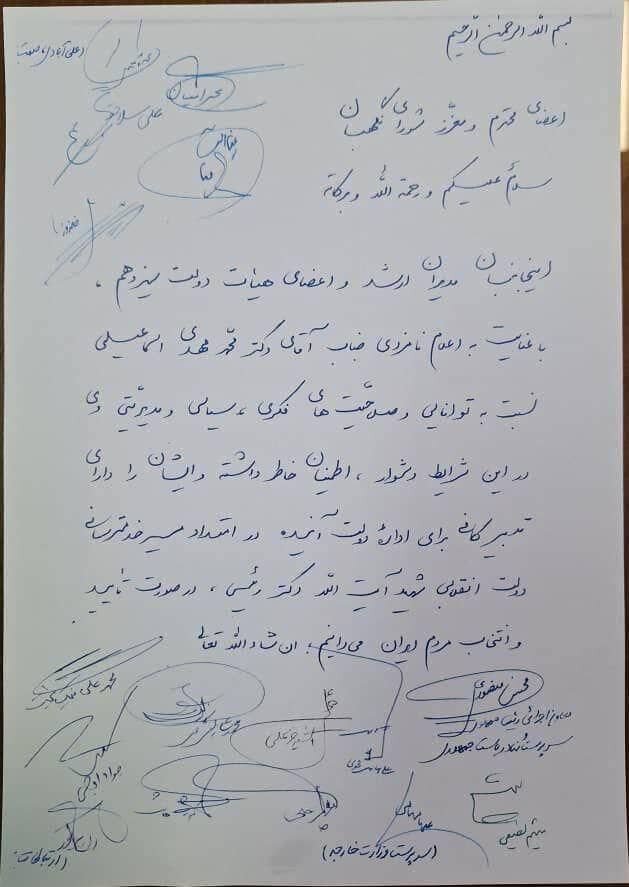 بسم الله الرحمن الرحیم
اعضای محترم و معزّز شورای نگهبان
سلامٌ علیکم و رحمة الله و برکاته
اینجانبان مدیران ارشد و اعضای هیأت دولت سیزدهم،
با عنایت به اعلام نامزدی جناب آقای دکتر محمّد مهدی اسماعیلی
نسبت به توانایی و صلاحیّت‌های فکری، سیاسی و مدیریّتی وی
در این شرایط دشوار، اطمینان خاطر داشته و ایشان را دارای
تدبیر کافی برای ادارهٔ دولت آینده در امتداد مسیر خدمترسانی
دولت انقلابی شهید آیت الله دکتر رئیسی، در صورت تأیید
و انتخاب مردم ایران می‌دانیم. ان شاء الله تعالی
(علی آبادی، صمت)
علی سلاجقه
محسن منصوری
معاون اجرائی رئیس جمهور
سرپرست نهاد ریاست جمهوری
جواد اوجی
میثم لطیفی
(سرپرست وزارت خارجه)
(ارتباطات)